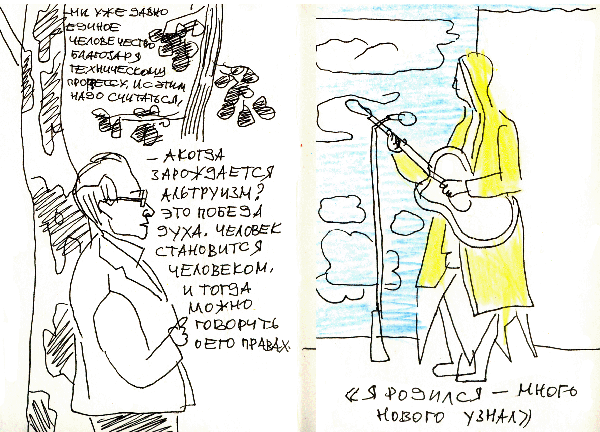 – МЫ УЖЕ ДАВНО
ЕДИНОЕ
ЧЕЛОВЕЧЕСТВО
БЛАГОДАРЯ
ТЕХНИЧЕСКОМУ
ПРОГРЕССУ, И С ЭТИМ
НАДО СЧИТАТЬСЯ.
– А КОГДА
ЗАРОЖДАЕТСЯ
АЛЬТРУИЗМ?
ЭТО ПОБЕДА
ДУХА. ЧЕЛОВЕК
СТАНОВИТСЯ
ЧЕЛОВЕКОМ,
И ТОГДА
МОЖНО
ГОВОРИТЬ
О ЕГО ПРАВАХ.
«Я РОДИЛСЯ – МНОГО
НОВОГО УЗНАЛ»